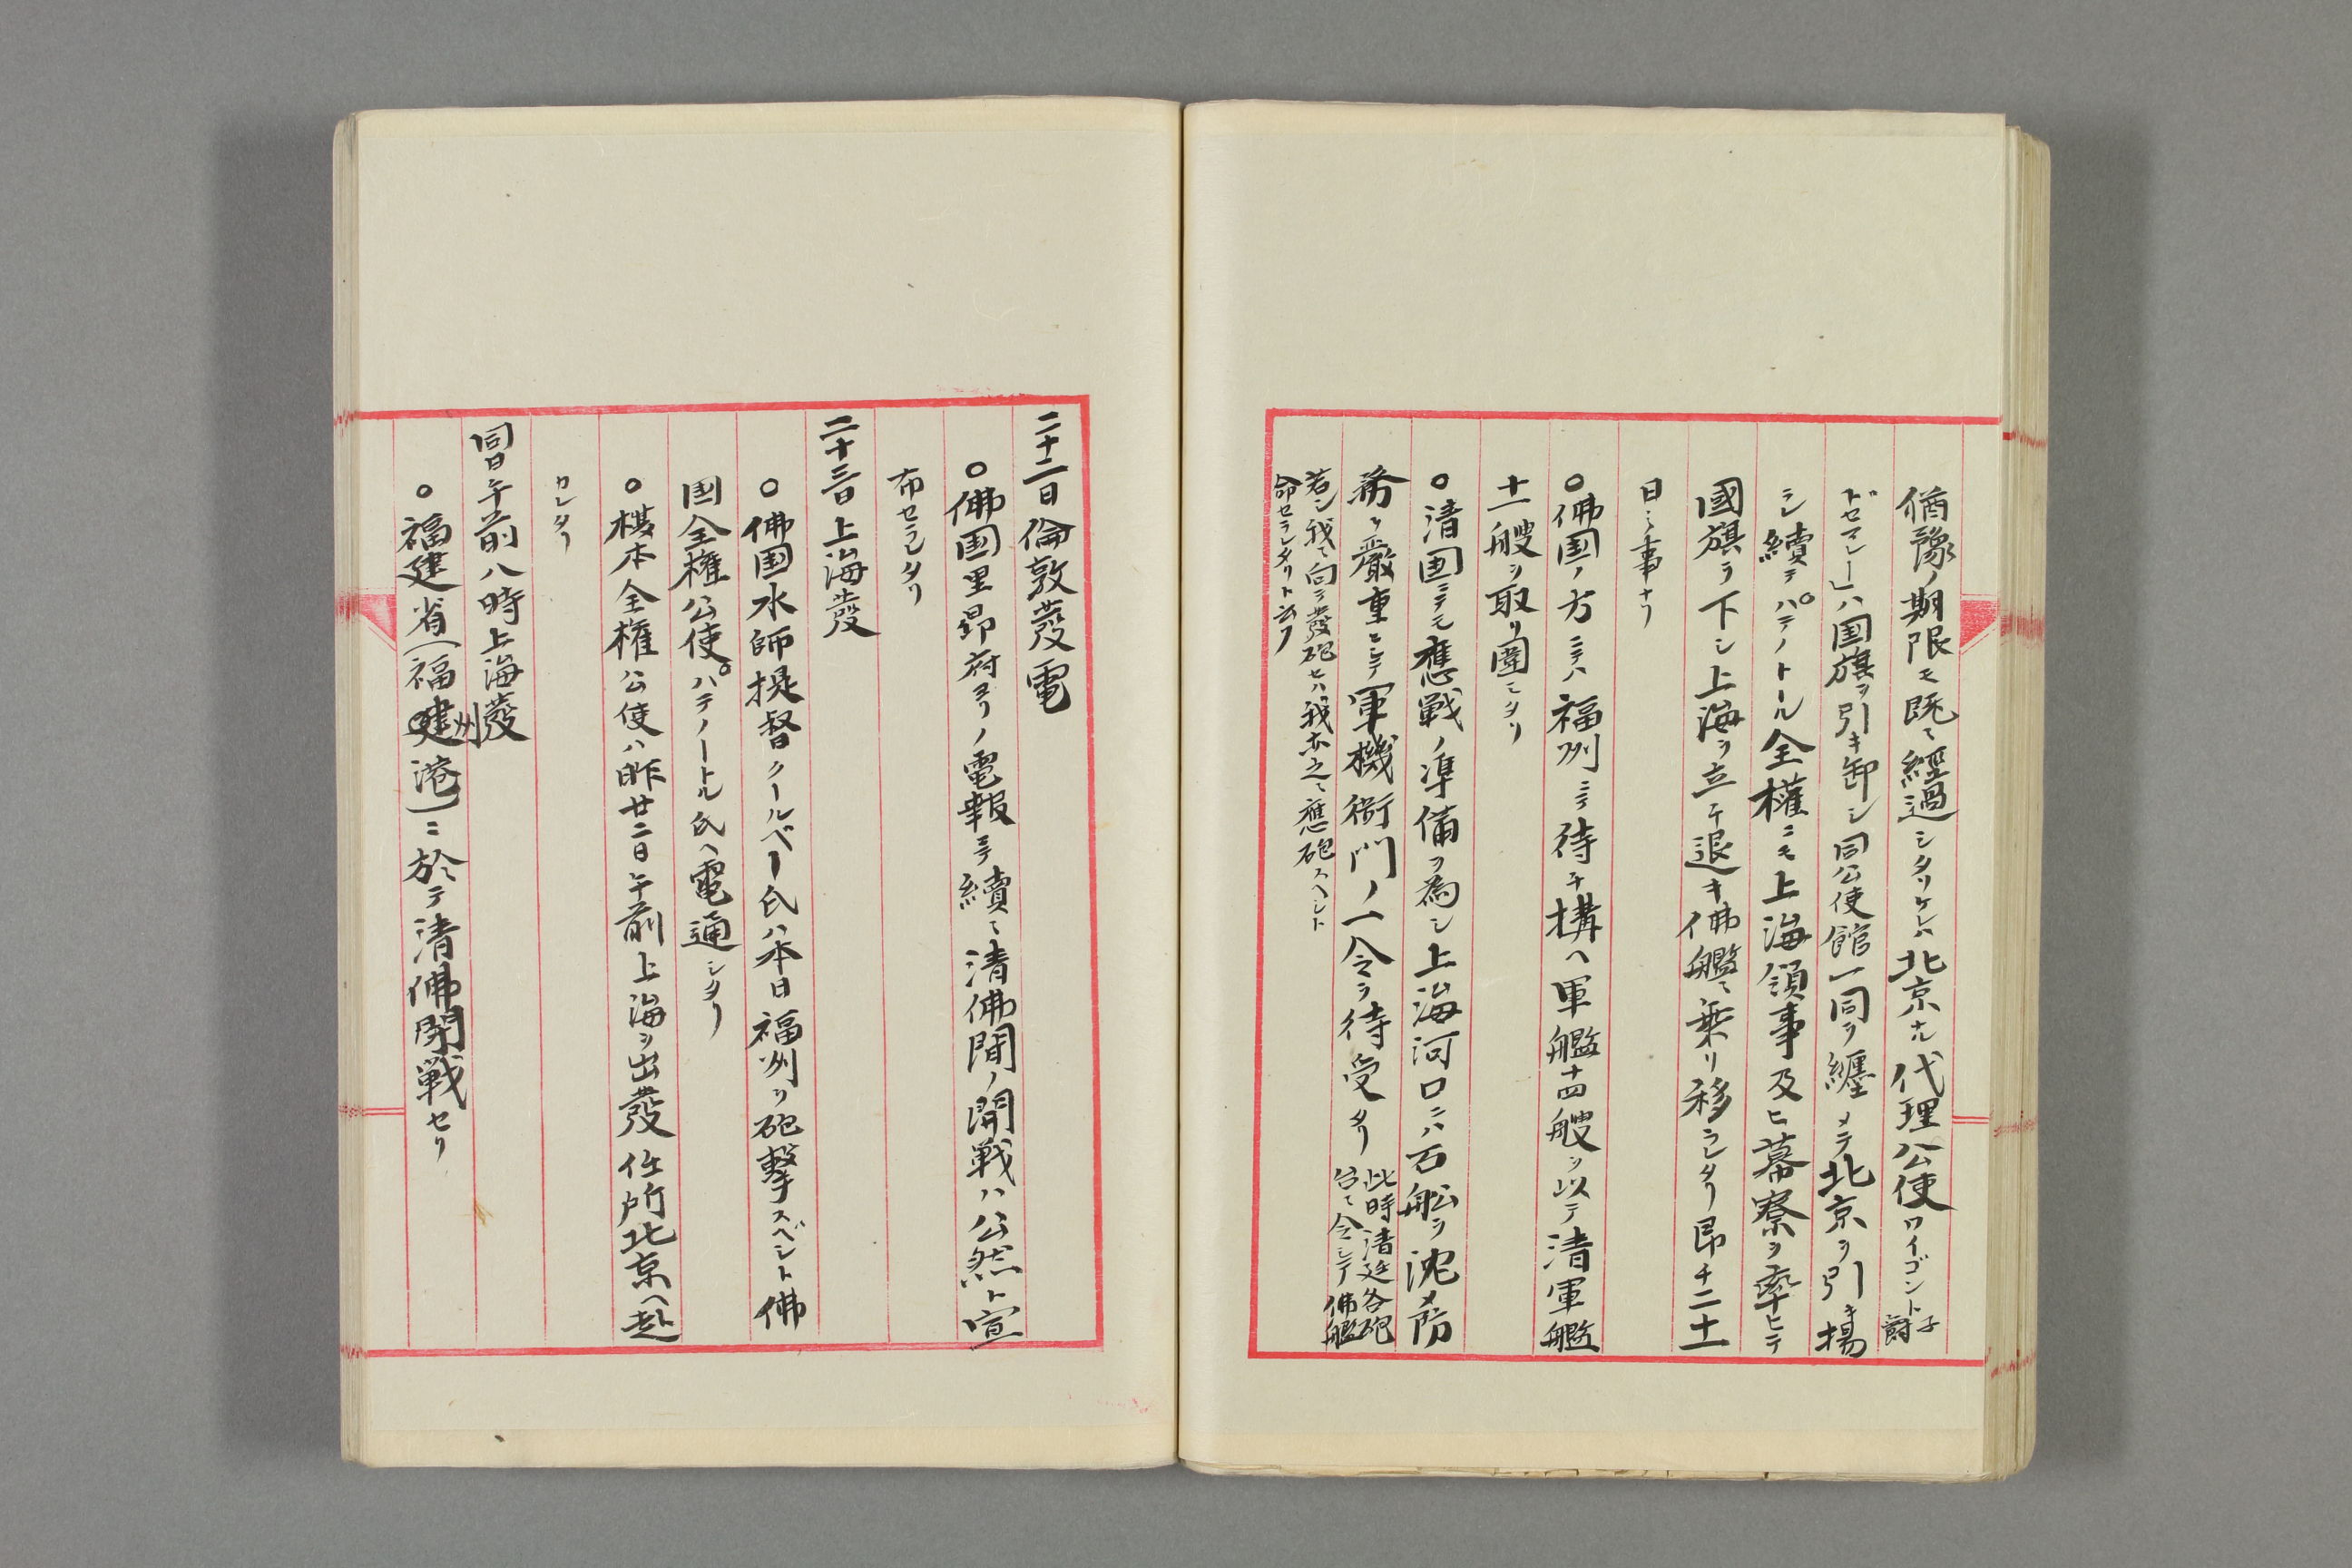 猶豫ノ期限モ既ニ經過シタリケレハ北京ナル代理公使ワイゴント子爵
ドセマレー」ハ国旗ヲ引キ卸シ同公使館一同ヲ纏メテ北京ヲ引キ揚
ラレ續テハテノトール全權ニモ上海領事及ヒ幕寮ヲ率ヒテ
國旗ヲ下シ上海ヲ立チ退キ佛艦ニ乗リ移ラレタリ即チ二十一
日ノ事ナリ
○佛国ノ方ニテハ福州ニテ待チ構ヘ軍艦十四艘ヲ以テ清軍艦
十一艘ヲ取リ圍ミタリ
○清国ニテモ應戰ノ準備ヲ為シ上海河口ニハ石舩ヲ沈メ防
務ヲ嚴重ニシテ軍機衙門ノ一令ヲ待受タリ
此時清廷各砲
台ニ令シテ佛艦
若シ我ニ向テ發砲セハ我亦之ニ應砲スヘシト
命セラレタリト云フ
二十二日倫敦發電
○佛国里昂府ヨリノ電報ニテ續テ清佛間ノ開戰ハ公然ト宣
布セラレタリ
二十三日上海發
○佛国水師提督クールベー氏ハ本日福州ヲ砲撃スベシト佛
国全權公使ハテノートル氏ヘ電通シタリ
○榎本全權公使ハ昨廿二日午前上海ヲ出發任所北京ヘ赴
カレタリ
同日午前八時上海發
○福建省(福州港)ニ於テ清佛開戰セリ